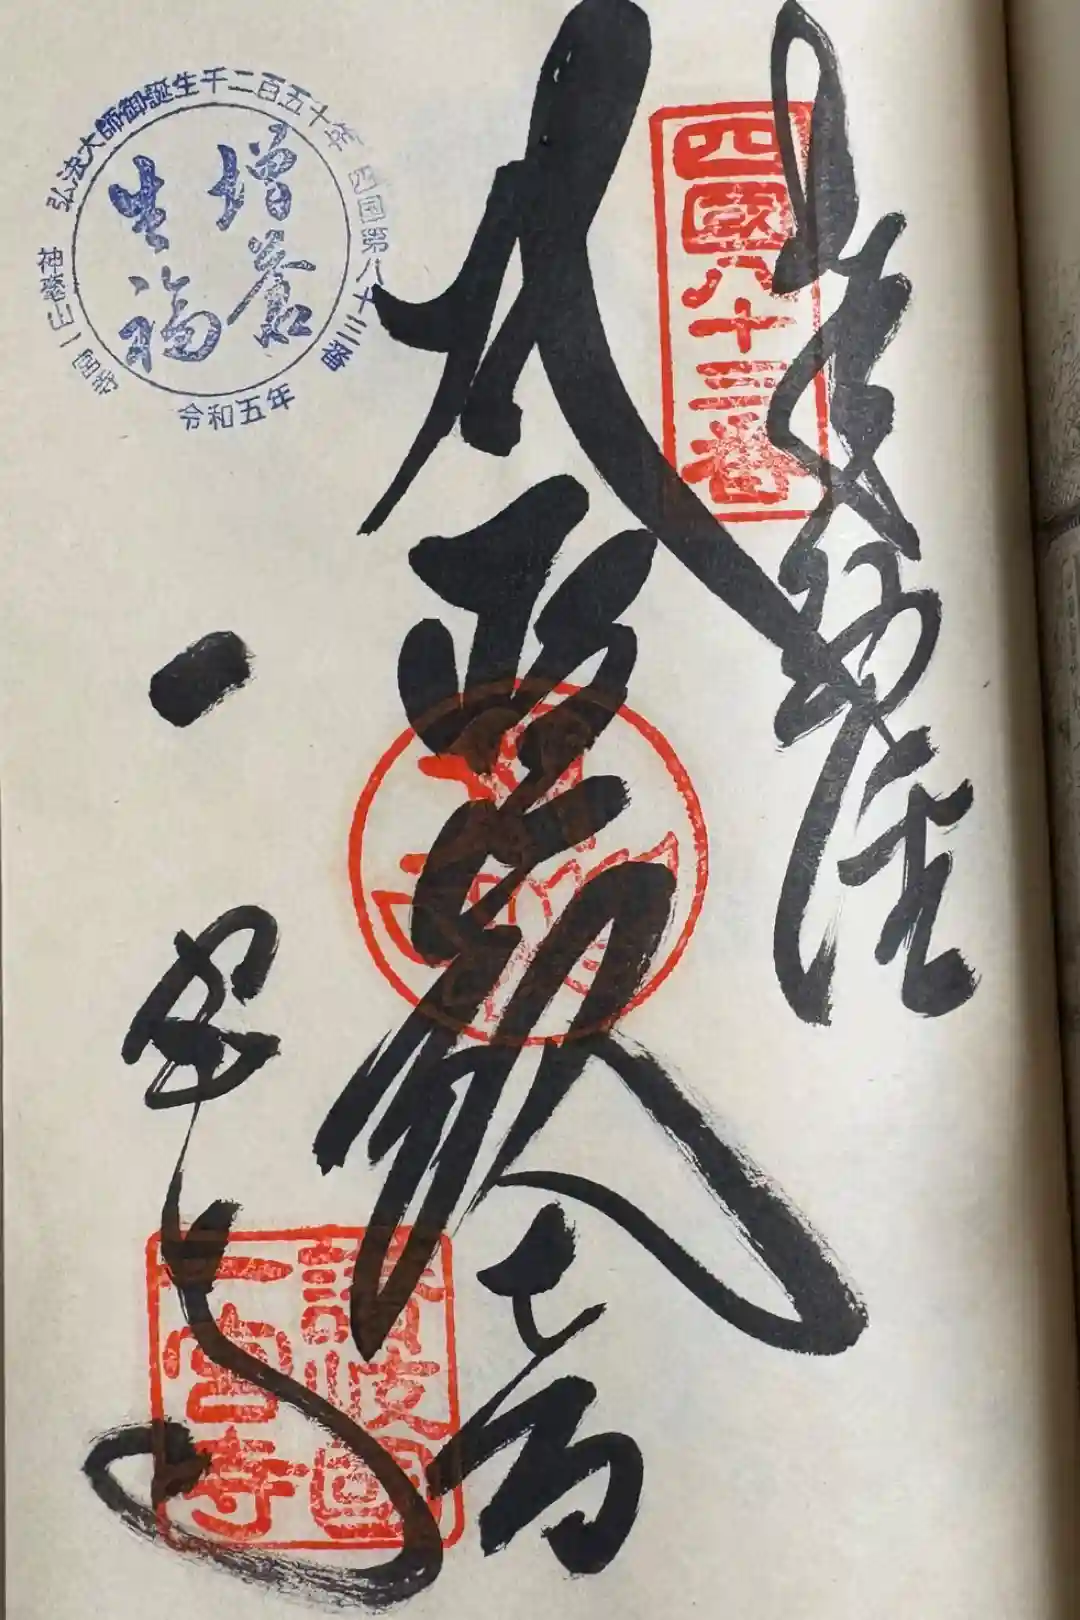 四國八十三番
大聖観音
一宮寺
讃岐國
一宮寺
弘法大師御誕生千二百五十年
四国第八十三番
神毫山一宮寺
令和五年
増
生福